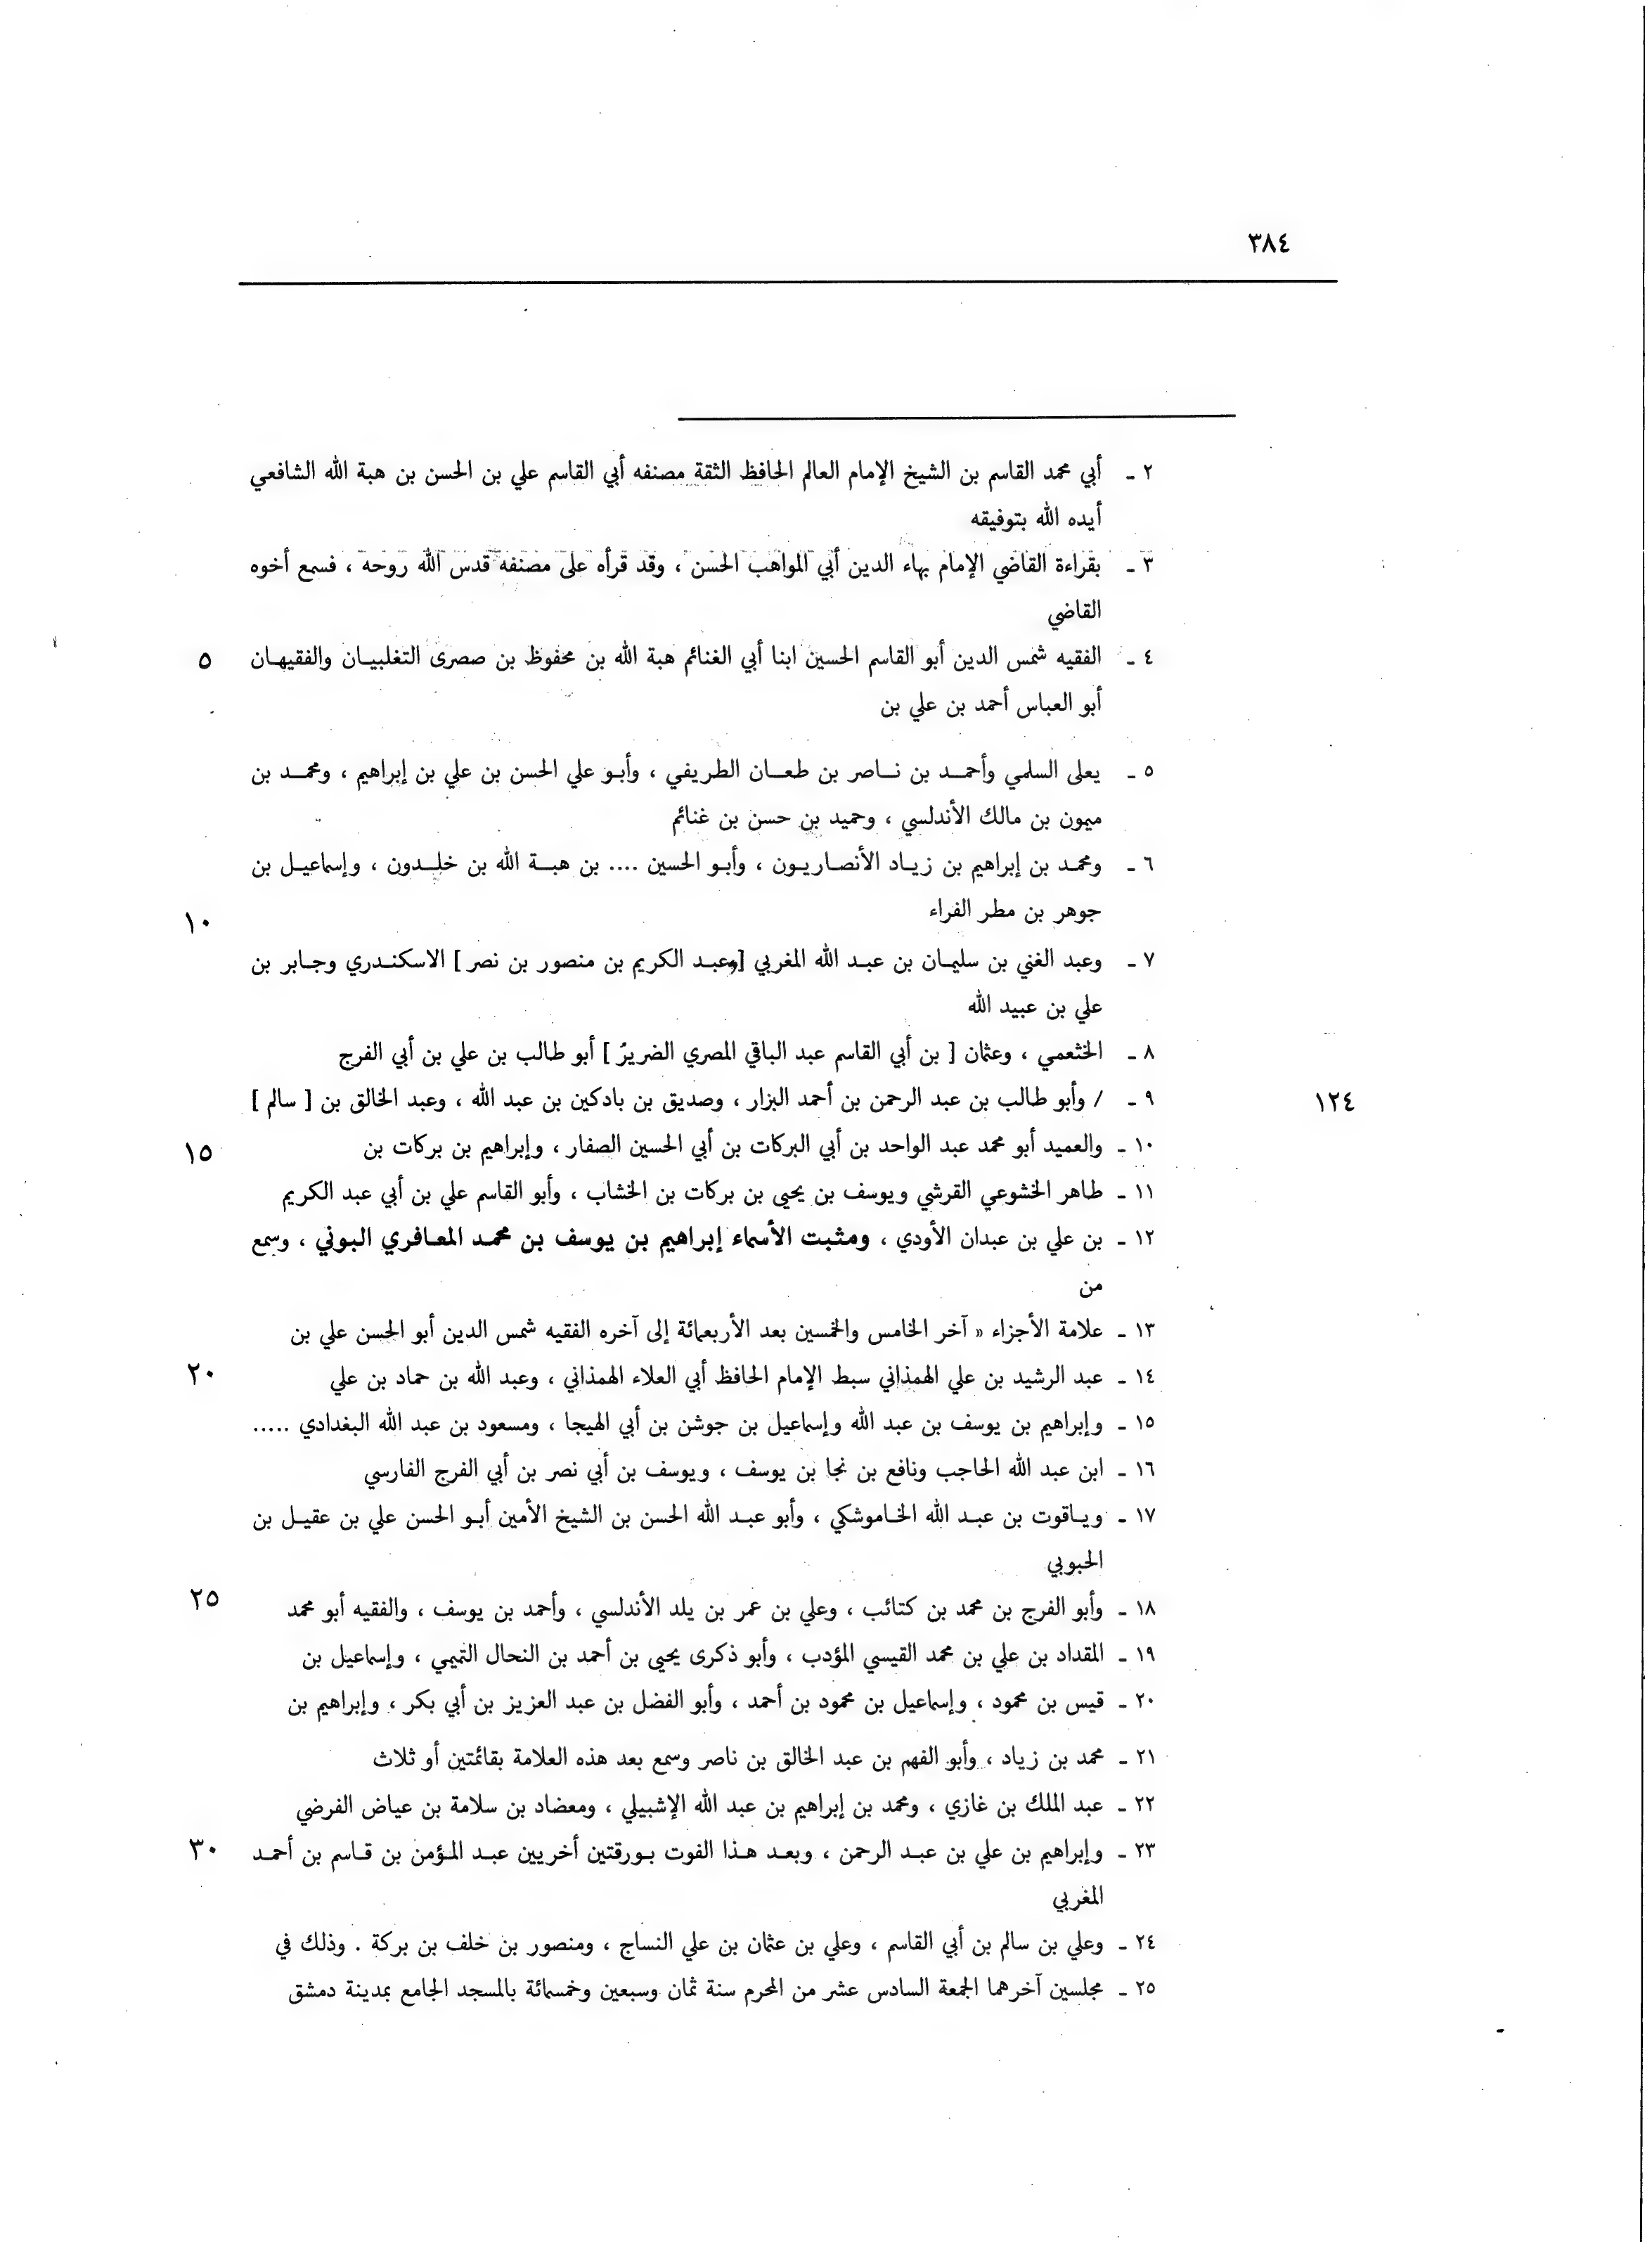 ٣٨٤
٢ ـ أبي محمد القاسم بن الشيخ الإمام العالم الحافظ الثقة مصنفه أبي القاسم علي بن الحسن بن هبة الله الشافعي
أيده الله بتوفيقه
٣ ـ بقراءة القاضي الإمام بهاء الدين أبي المواهب الحسن ، وقد قرأه على مصنفه قدس الله روحه ، فسمع أخوه
القاضي
٤ ـ الفقيه شمس الدين أبو القاسم الحسين ابنا أبي الغنائم هبة الله بن محفوظ بن صصرى التغلبيـان والفقيهـان ٥
أبو العباس أحمد بن علي بن
٥ ـ يعلى السلمي وأحمـد بن نـاصر بن طعـان الطريفي ، وأبـو علي الحسن بن علي بن إبراهيم ، ومحمـد بن
ميمون بن مالك الأندلسي ، وحميد بن حسن بن غنائم
٦ ـ ومحمـد بن إبراهيم بن زيـاد الأنصـاريـون ، وأبـو الحسين .... بن هبـة الله بن خلـدون ، وإسماعيـل بن
جوهر بن مطر الفراء ١٠
٧ ـ وعبد الغني بن سليمـان بن عبـد الله المغربي [وعبـد الكريم بن منصور بن نصر] الاسكنـدري وجـابر بن
علي بن عبيد الله
٨ ـ الخثعمي ، وعثمان [ بن أبي القاسم عبد الباقي المصري الضريرُ ] أبو طالب بن علي بن أبي الفرج
١٢٤ ٩ ـ / وأبو طالب بن عبد الرحمن بن أحمد البزار ، وصديق بن بادكين بن عبد الله ، وعبد الخالق بن [ سالم ]
١٠ ـ والعميد أبو محمد عبد الواحد بن أبي البركات بن أبي الحسين الصفار ، وإبراهيم بن بركات بن ١٥
١١ ـ طاهر الخشوعي القرشي ويوسف بن يحيى بن بركات بن الخشاب ، وأبو القاسم علي بن أبي عبد الكريم
١٢ ـ بن علي بن عبدان الأودي ، ومثبت الأسماء إبراهيم بن يوسف بن محمـد المعـافري البـوني ، وسمع
من
١٣ ـ علامة الأجزاء « آخر الخامس والخمسين بعد الأربعمائة إلى آخره الفقيه شمس الدين أبو الحسن علي بن
١٤ ـ عبد الرشيد بن علي الهمذاني سبط الإمام الحافظ أبي العلاء الهمذاني ، وعبد الله بن حماد بن علي ٢٠
١٥ ـ وإبراهيم بن يوسف بن عبد الله وإسماعيل بن جوشن بن أبي الهيجا ، ومسعود بن عبد الله البغدادي .....
١٦ ـ ابن عبد الله الحاجب ونافع بن نجا بن يوسف ، ويوسف بن أبي نصر بن أبي الفرج الفارسي
١٧ ـ ويـاقوت بن عبـد الله الخـاموشكي ، وأبو عبـد الله الحسن بن الشيخ الأمين أبـو الحسن علي بن عقيـل بن
الحبوبي
١٨ ـ وأبو الفرج بن محمد بن كتائب ، وعلي بن عمر بن يلد الأندلسي ، وأحمد بن يوسف ، والفقيه أبو محمد ٢٥
١٩ ـ المقداد بن علي بن محمد القيسي المؤدب ، وأبو ذكرى يحيى بن أحمد بن النحال التميمي ، وإسماعيل بن
٢٠ ـ قيس بن محمود ، وإسماعيل بن محمود بن أحمد ، وأبو الفضل بن عبد العزيز بن أبي بكر ، وإبراهيم بن
٢١ ـ محمد بن زياد ، وأبو الفهم بن عبد الخالق بن ناصر وسمع بعد هذه العلامة بقائمتين أو ثلاث
٢٢ ـ عبد الملك بن غازي ، ومحمد بن إبراهيم بن عبد الله الإشبيلي ، ومعضاد بن سلامة بن عياض الفرضي
٢٣ ـ وإبراهيم بن علي بن عبـد الرحمن ، وبعـد هـذا الفوت بـورقتين أخريين عبـد المـؤمن بن قـاسم بن أحمـد ٣٠
المغربي
٢٤ ـ وعلي بن سالم بن أبي القاسم ، وعلي بن عثمان بن علي النساج ، ومنصور بن خلف بن بركة . وذلك في
٢٥ ـ مجلسين آخرهما الجمعة السادس عشر من المحرم سنة ثمان وسبعين وخمسمائة بالمسجد الجامع بمدينة دمشق